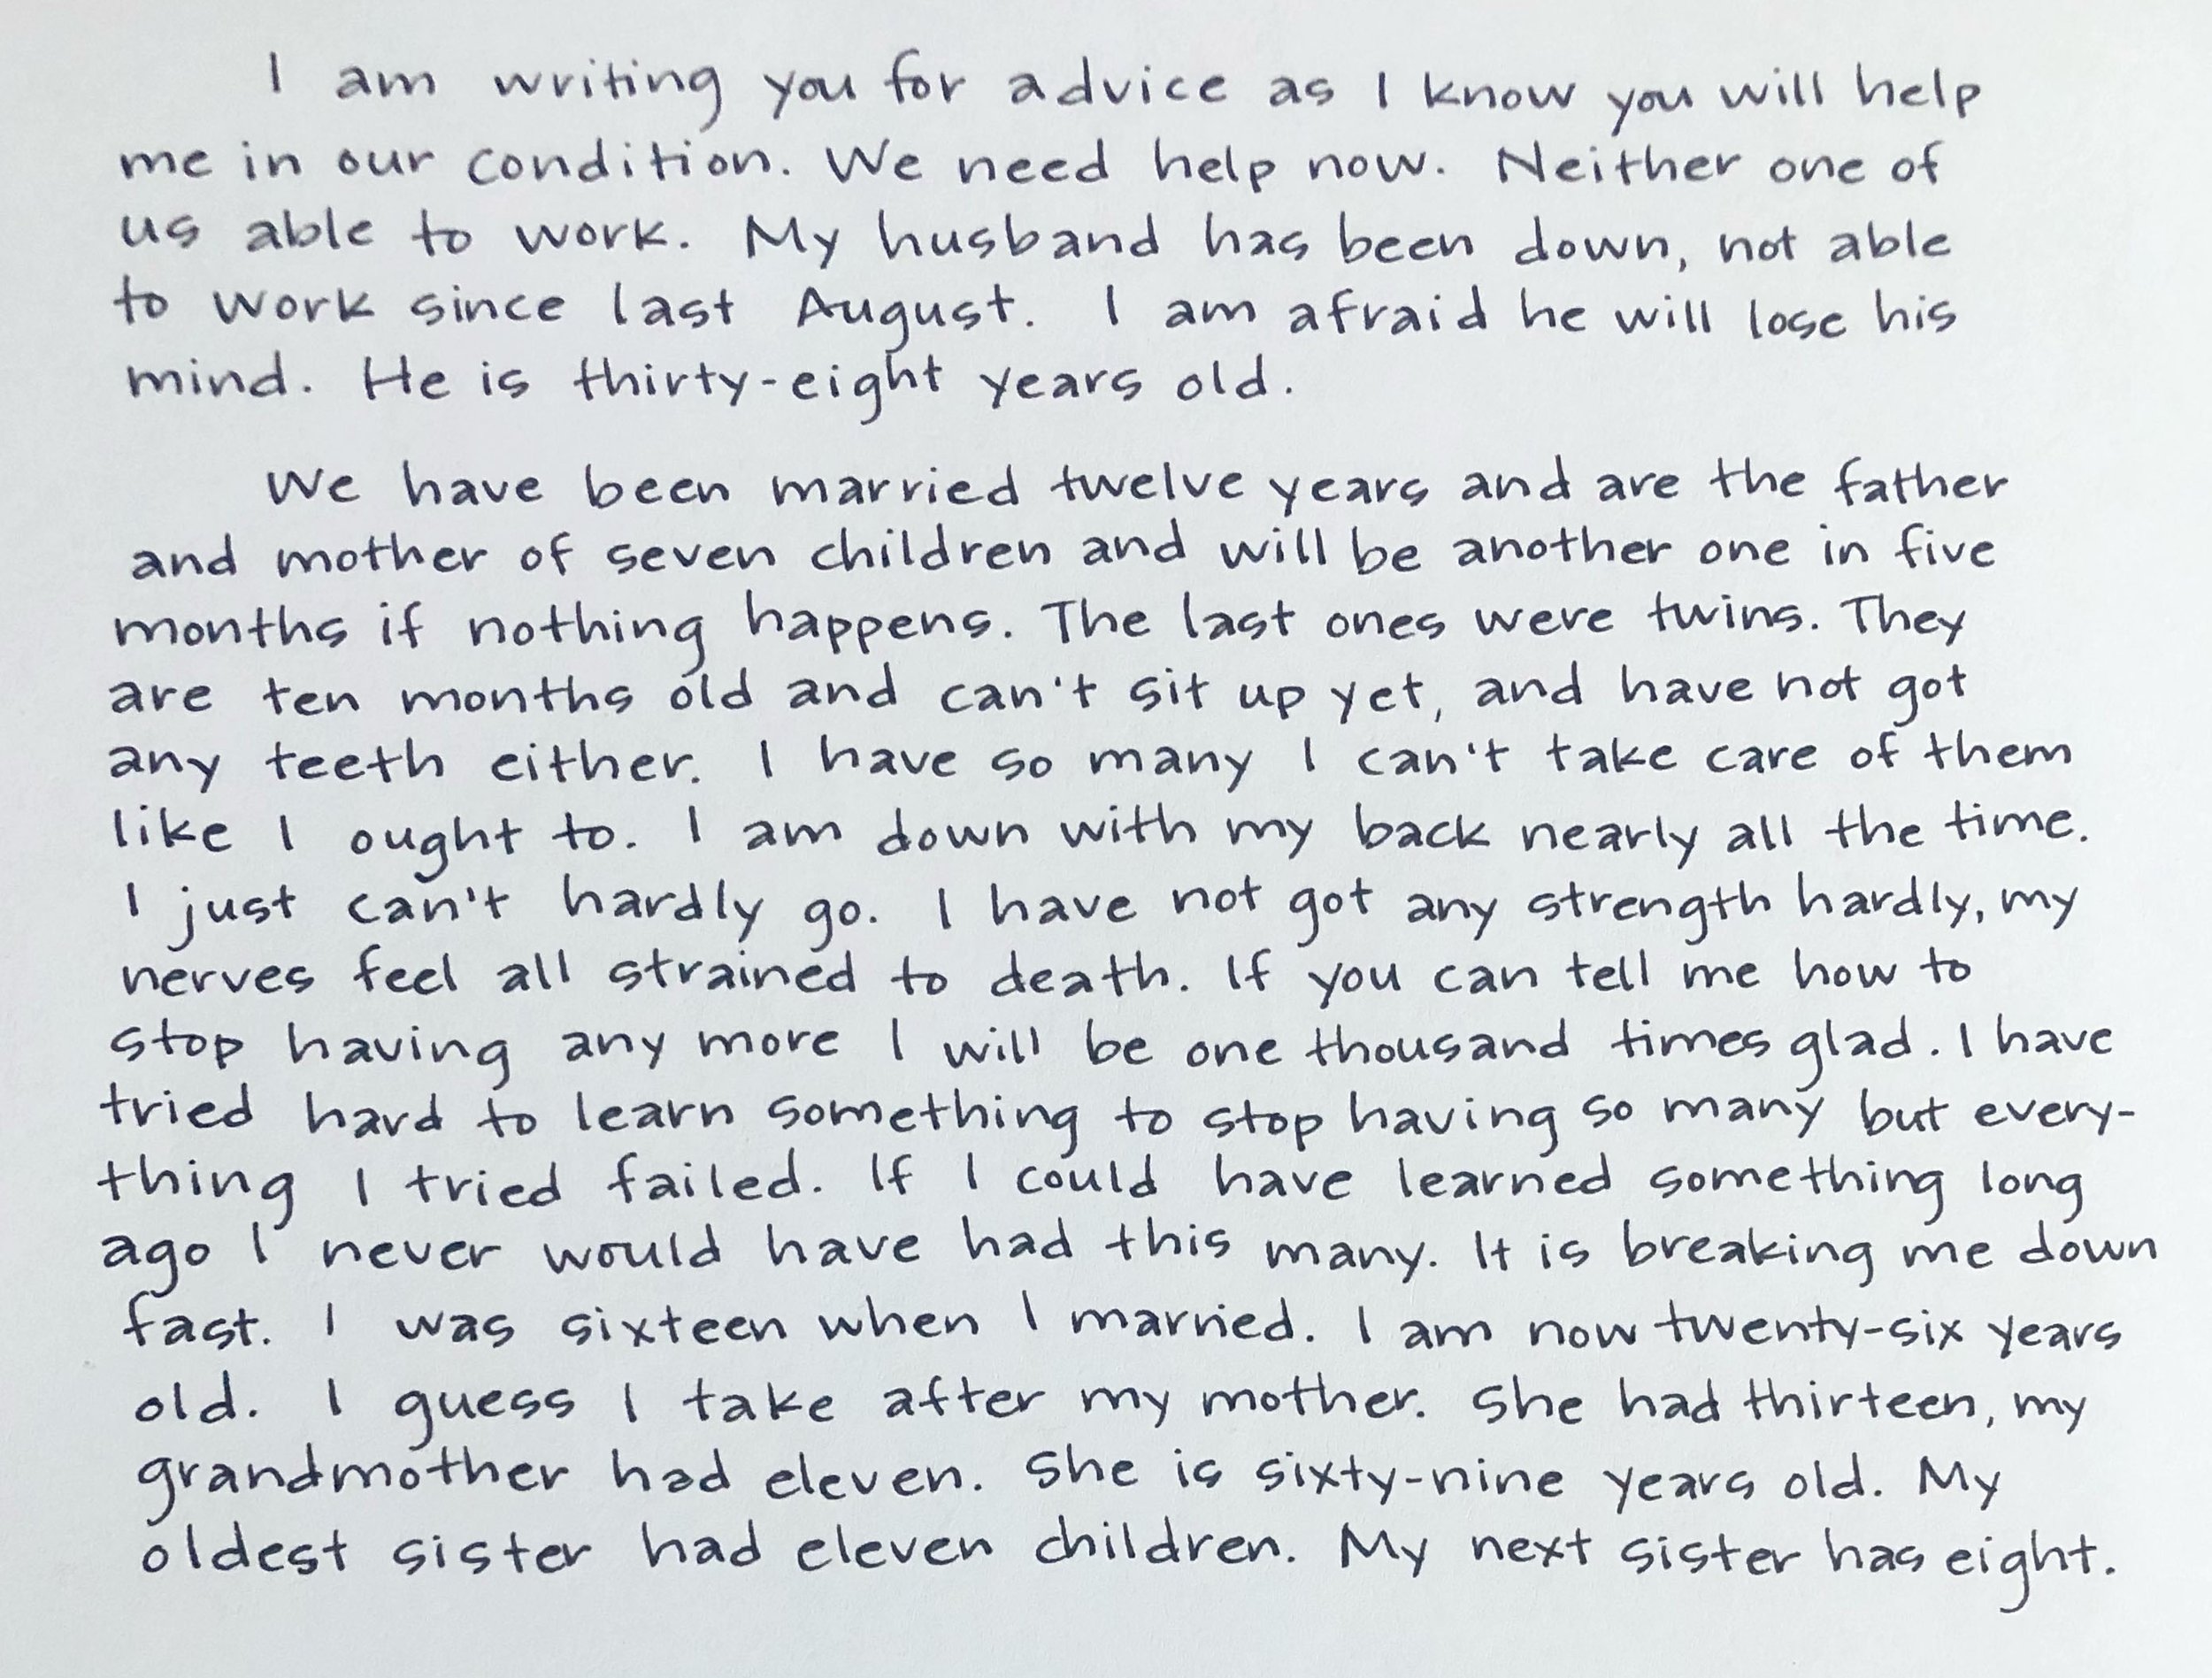 I am writing you for advice as I know you will help
me in our condition. We need help now. Neither one of
us able to work. My husband has been down, not able
to work since last August. I am afraid he will lose his
mind. He is thirty-eight years old.
We have been married twelve years and are the father
and mother of seven children and will be another one in five
months if nothing happens. The last ones were twins. They
are ten months old and can't sit up yet, and have not got
any teeth either. I have so many I can't take care of them
like I ought to. I am down with my back nearly all the time.
I just can't hardly go. I have not got any strength hardly, my
nerves feel all strained to death. If you can tell me how to
stop having any more I will be one thousand times glad. I have
tried hard to learn something to stop having so many but every-
thing I tried failed. If I could have learned something long
ago I never would have had this many. It is breaking me down
fast. I was sixteen when I married. I am now twenty-six years
old. I guess I take after my mother. She had thirteen, my
grandmother had eleven. She is sixty-nine years old. My
oldest sister had eleven children. My next sister has eight.